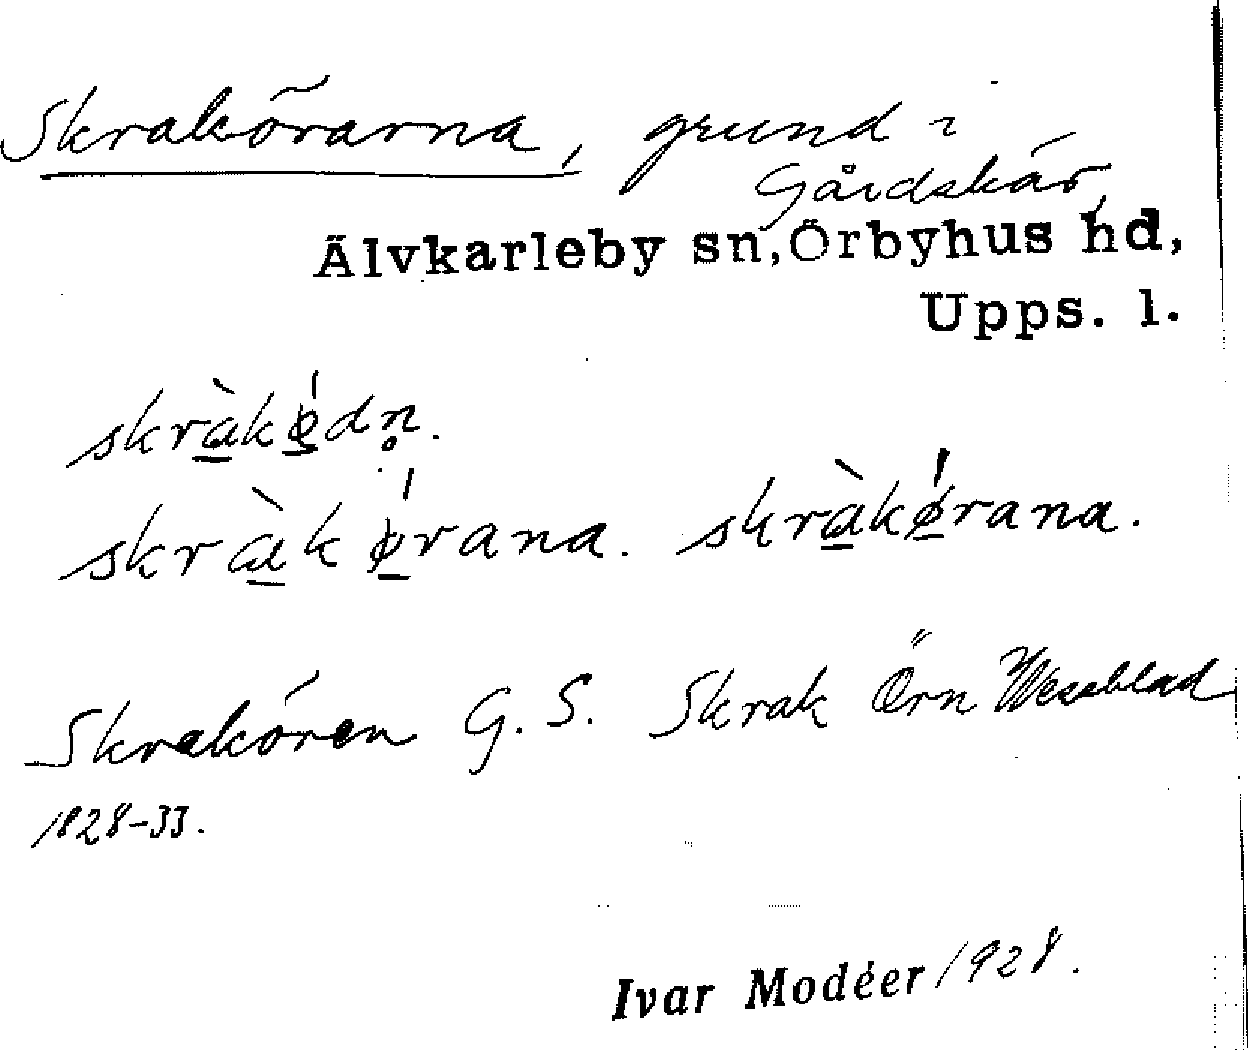 Skrakörarna, grund i
Gårdskär,
Älvkarleby sn, Örbyhus hd,
Upps. l.
skrà̱kǿ̱dn̥.
skrà̱kǿ̱rana. skrà̱kǿ̱rana.
Skrakören G. S. Skrak Örn Wessblad
1828-33.
Ivar Modéer 1928.